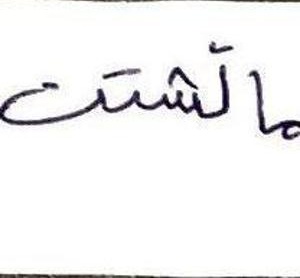 مالشتت